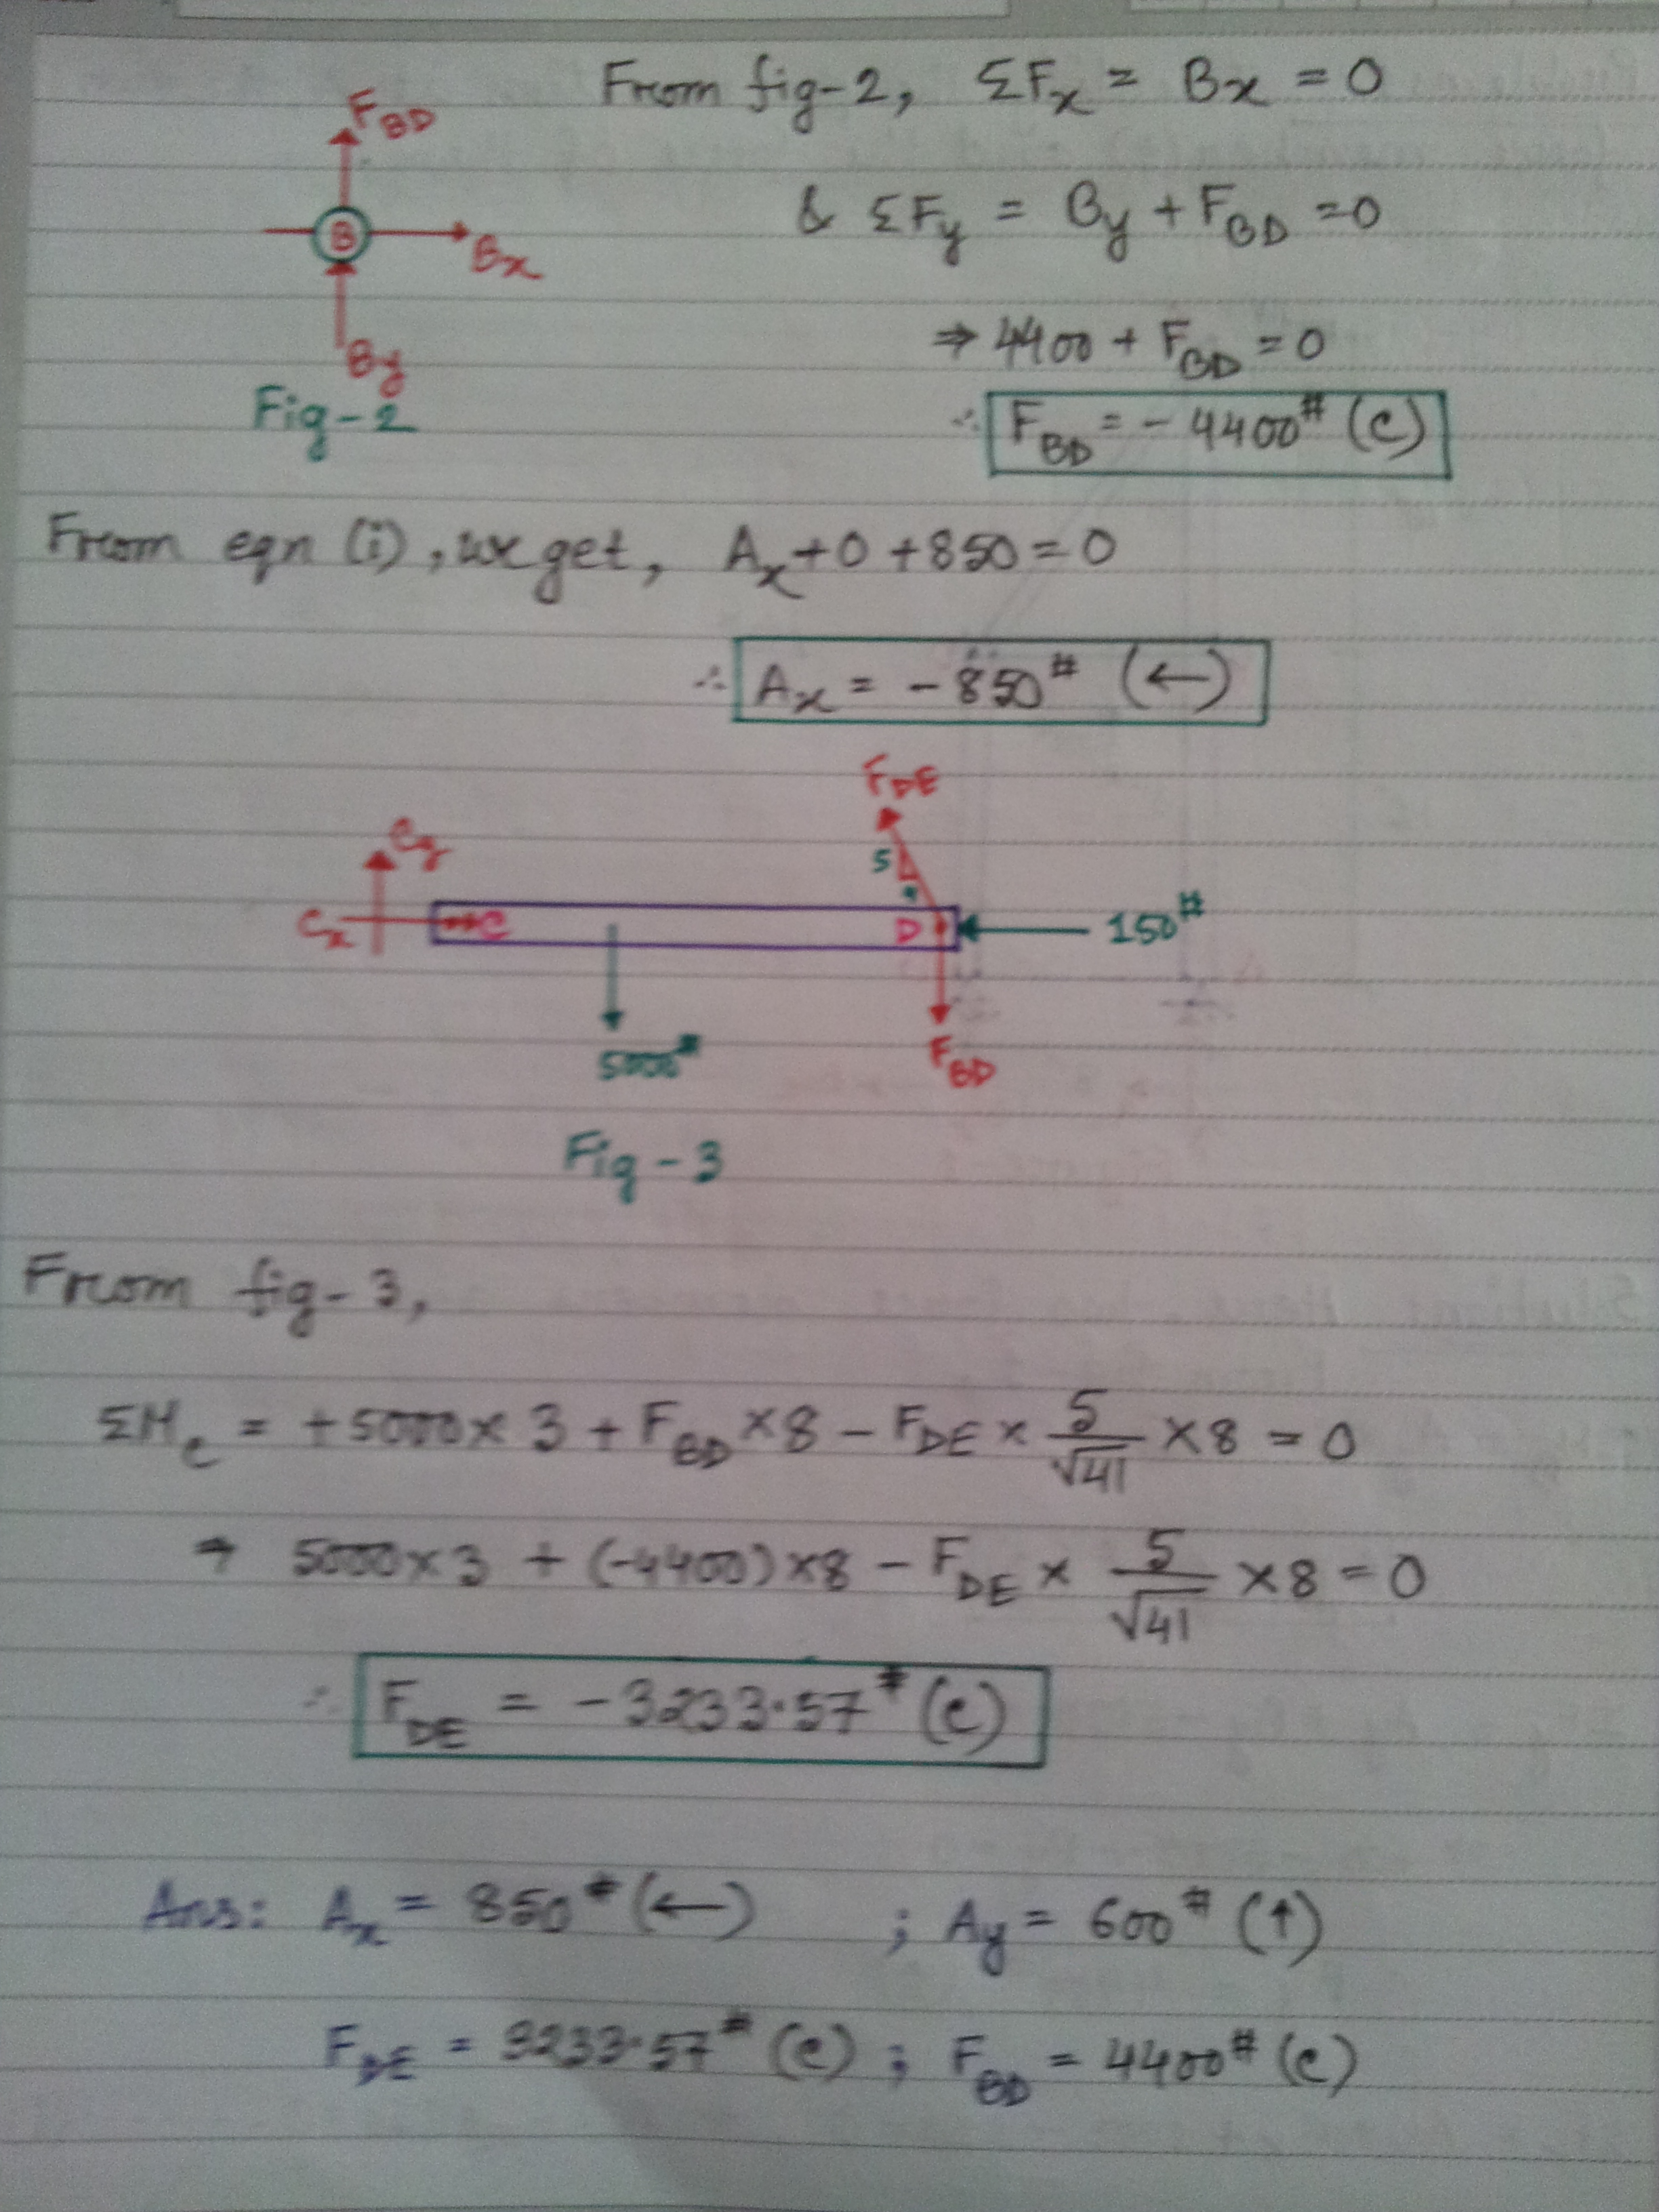 From fig-2, ΣFx = Bx = 0
FBD
B
Bx
By
Fig-2
& ΣFy = By + FBD = 0
⇒ 4400 + FBD = 0
∴ FBD = - 4400# (c)
From eqn (i), we get, Ax + 0 + 850 = 0
∴ Ax = - 850# (←)
FDE
Cy
5
4
Cx
C
D
150#
5000#
FBD
Fig - 3
From fig-3,
ΣMc = +5000 × 3 + FBD × 8 - FDE × 5/√41 × 8 = 0
⇒ 5000×3 + (-4400)×8 - FDE × 5/√41 × 8 = 0
∴ FDE = -3233.57# (c)
Ans: Ax = 850# (←) ; Ay = 600# (↑)
FDE = 3233.57# (c) ; FBD = 4400# (c)